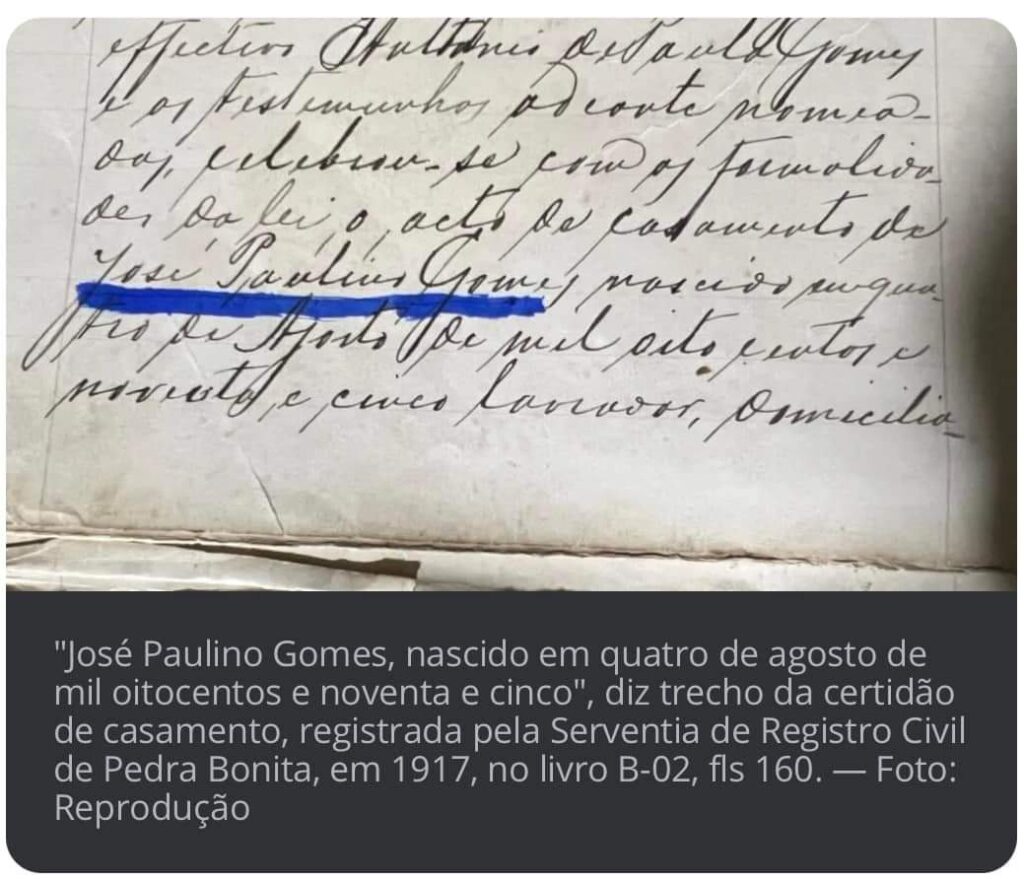 effectivo Antonio de Paula Gomes
e as testemunhas adeante nomea-
das, celebrou-se com as formalida-
des da lei, o acto de casamento de
José Paulino Gomes nascido em qua-
tro de Agosto de mil oito centos e
noventa e cinco lavrador, domicilia-
"José Paulino Gomes, nascido em quatro de agosto de
mil oitocentos e noventa e cinco", diz trecho da certidão
de casamento, registrada pela Serventia de Registro Civil
de Pedra Bonita, em 1917, no livro B-02, fls 160. — Foto:
Reprodução